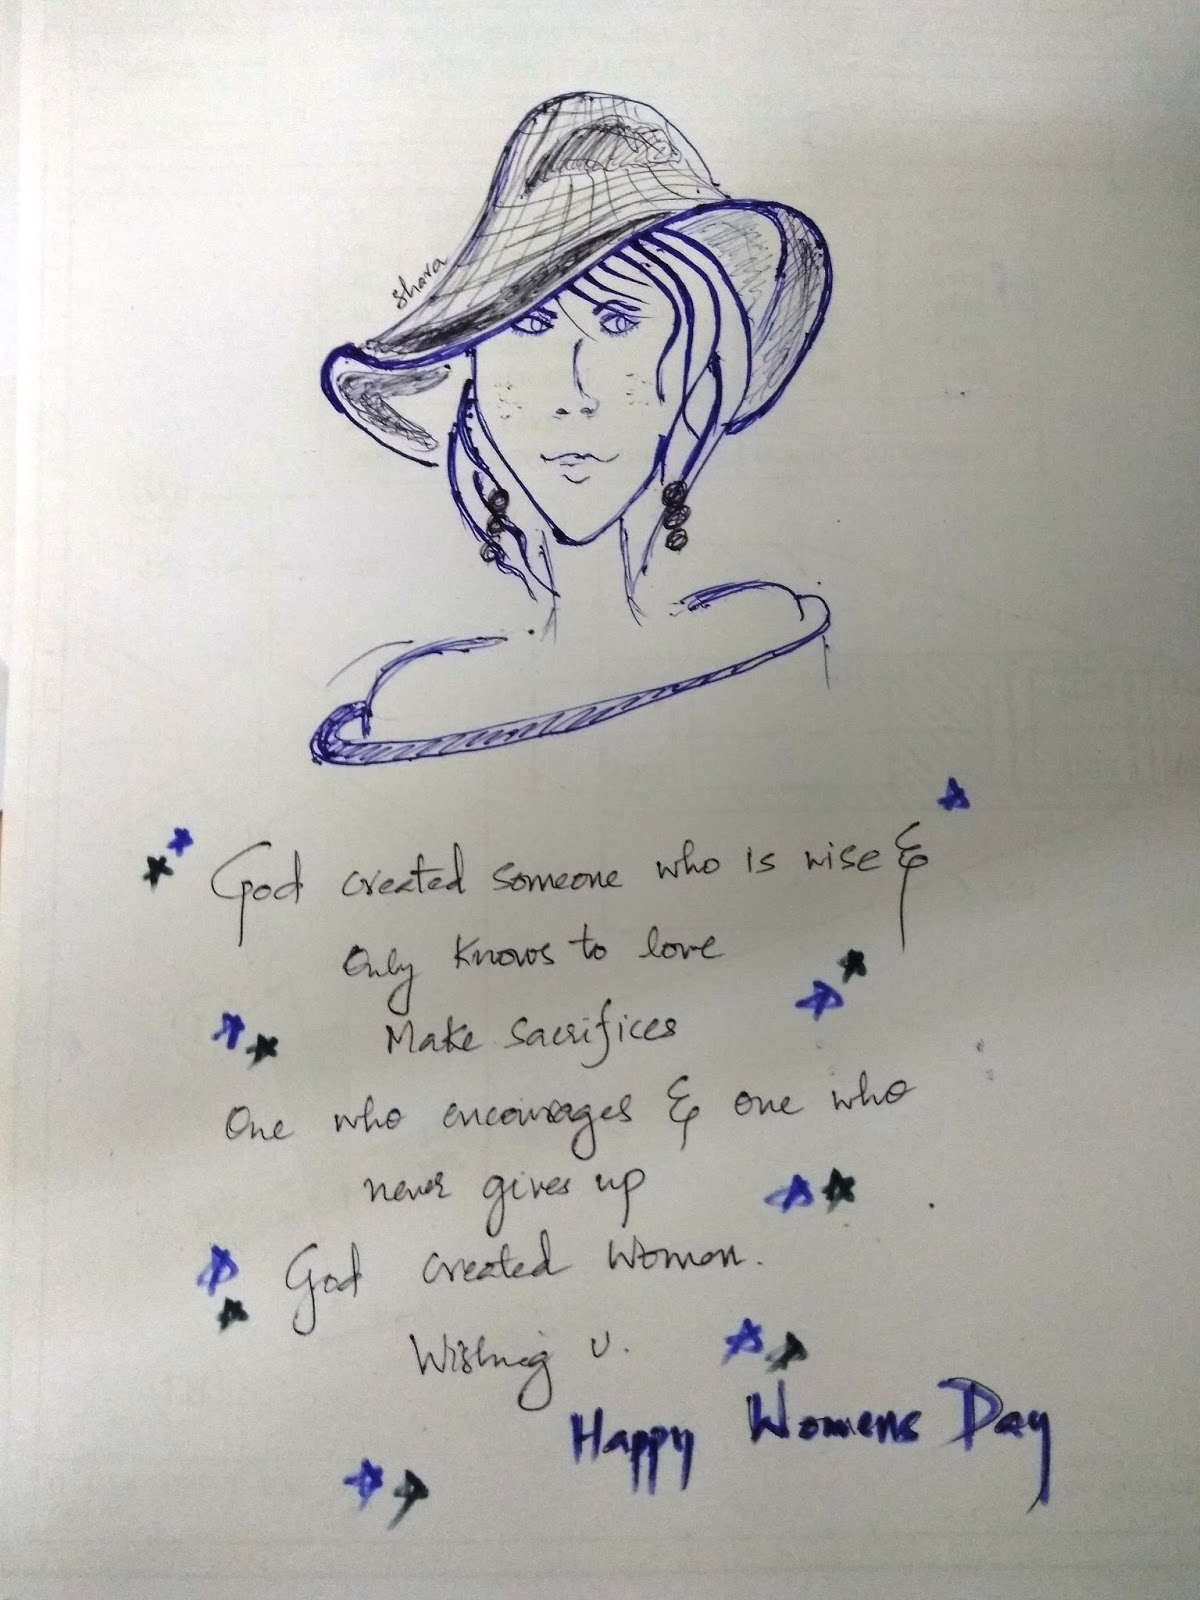 shara
God created someone who is wise &
Only knows to love
Make sacrifices
One who encourages & one who
never gives up
God created Woman.
Wishing U.
Happy Womens Day